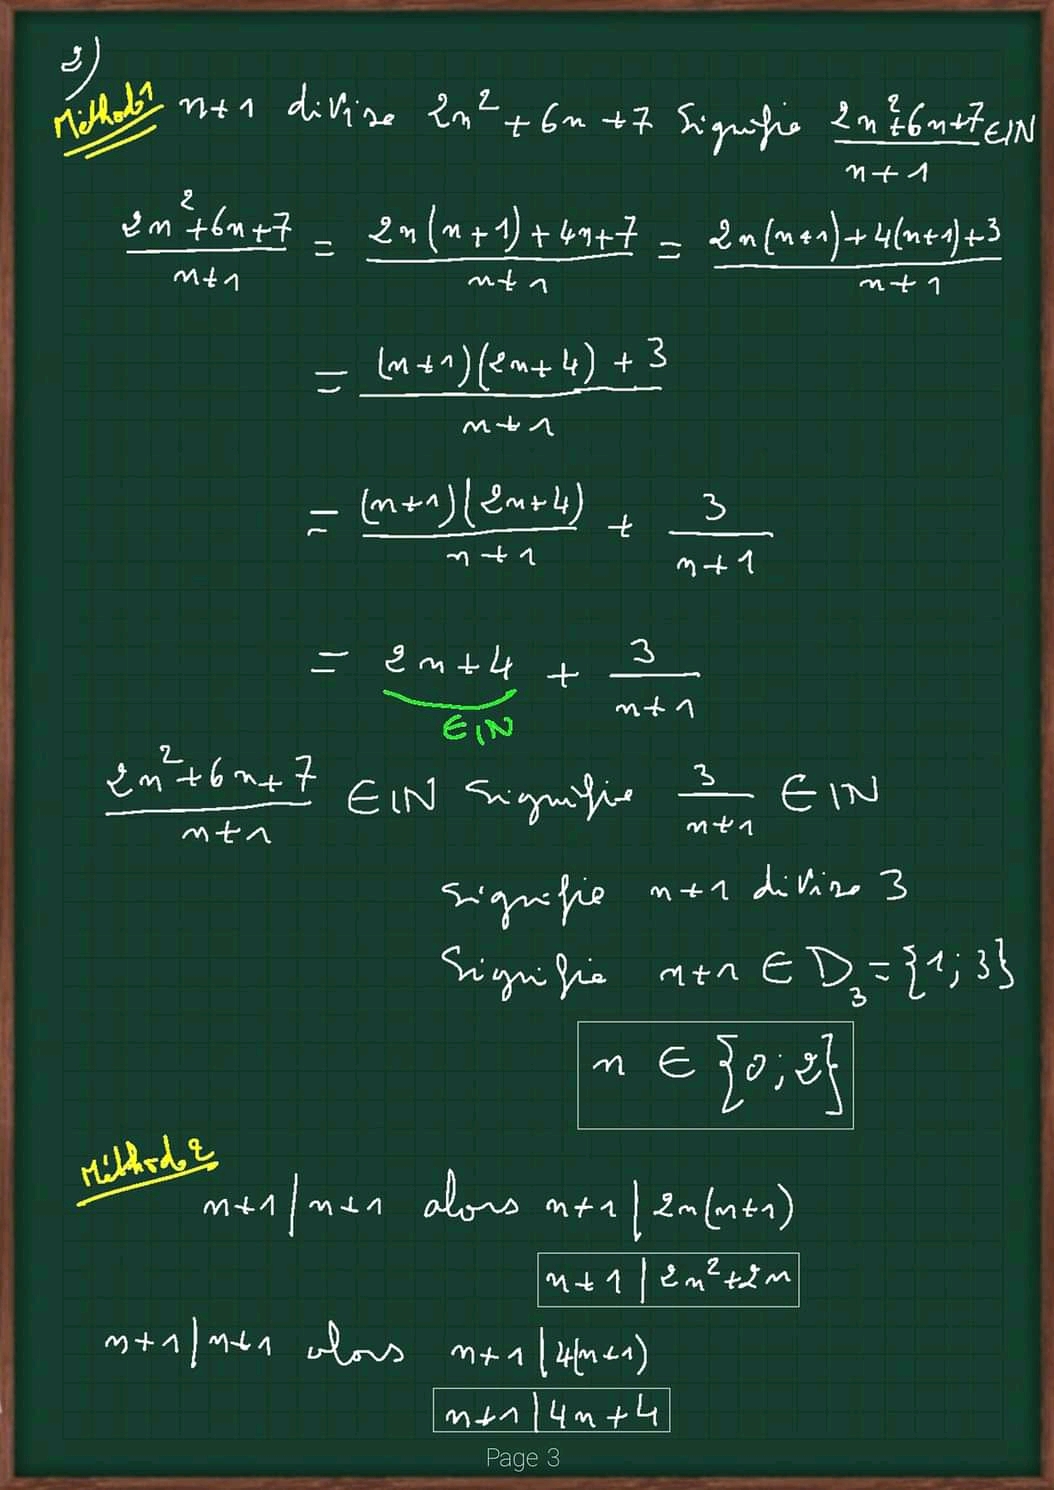 2)
Méthode 1 n+1 divise 2n²+6n+7 signifie (2n²+6n+7)/(n+1) ∈ IN
(2n²+6n+7)/(n+1) = (2n(n+1)+4n+7)/(n+1) = (2n(n+1)+4(n+1)+3)/(n+1)
= ((n+1)(2n+4)+3)/(n+1)
= ((n+1)(2n+4))/(n+1) + 3/(n+1)
= 2n+4 + 3/(n+1)
∈ IN
(2n²+6n+7)/(n+1) ∈ IN signifie 3/(n+1) ∈ IN
signifie n+1 divise 3
signifie n+1 ∈ D₃ = {1; 3}
n ∈ {0; 2}
Méthode 2
n+1 | n+1 alors n+1 | 2n(n+1)
n+1 | 2n²+2n
n+1 | n+1 alors n+1 | 4(n+1)
n+1 | 4n+4
Page 3